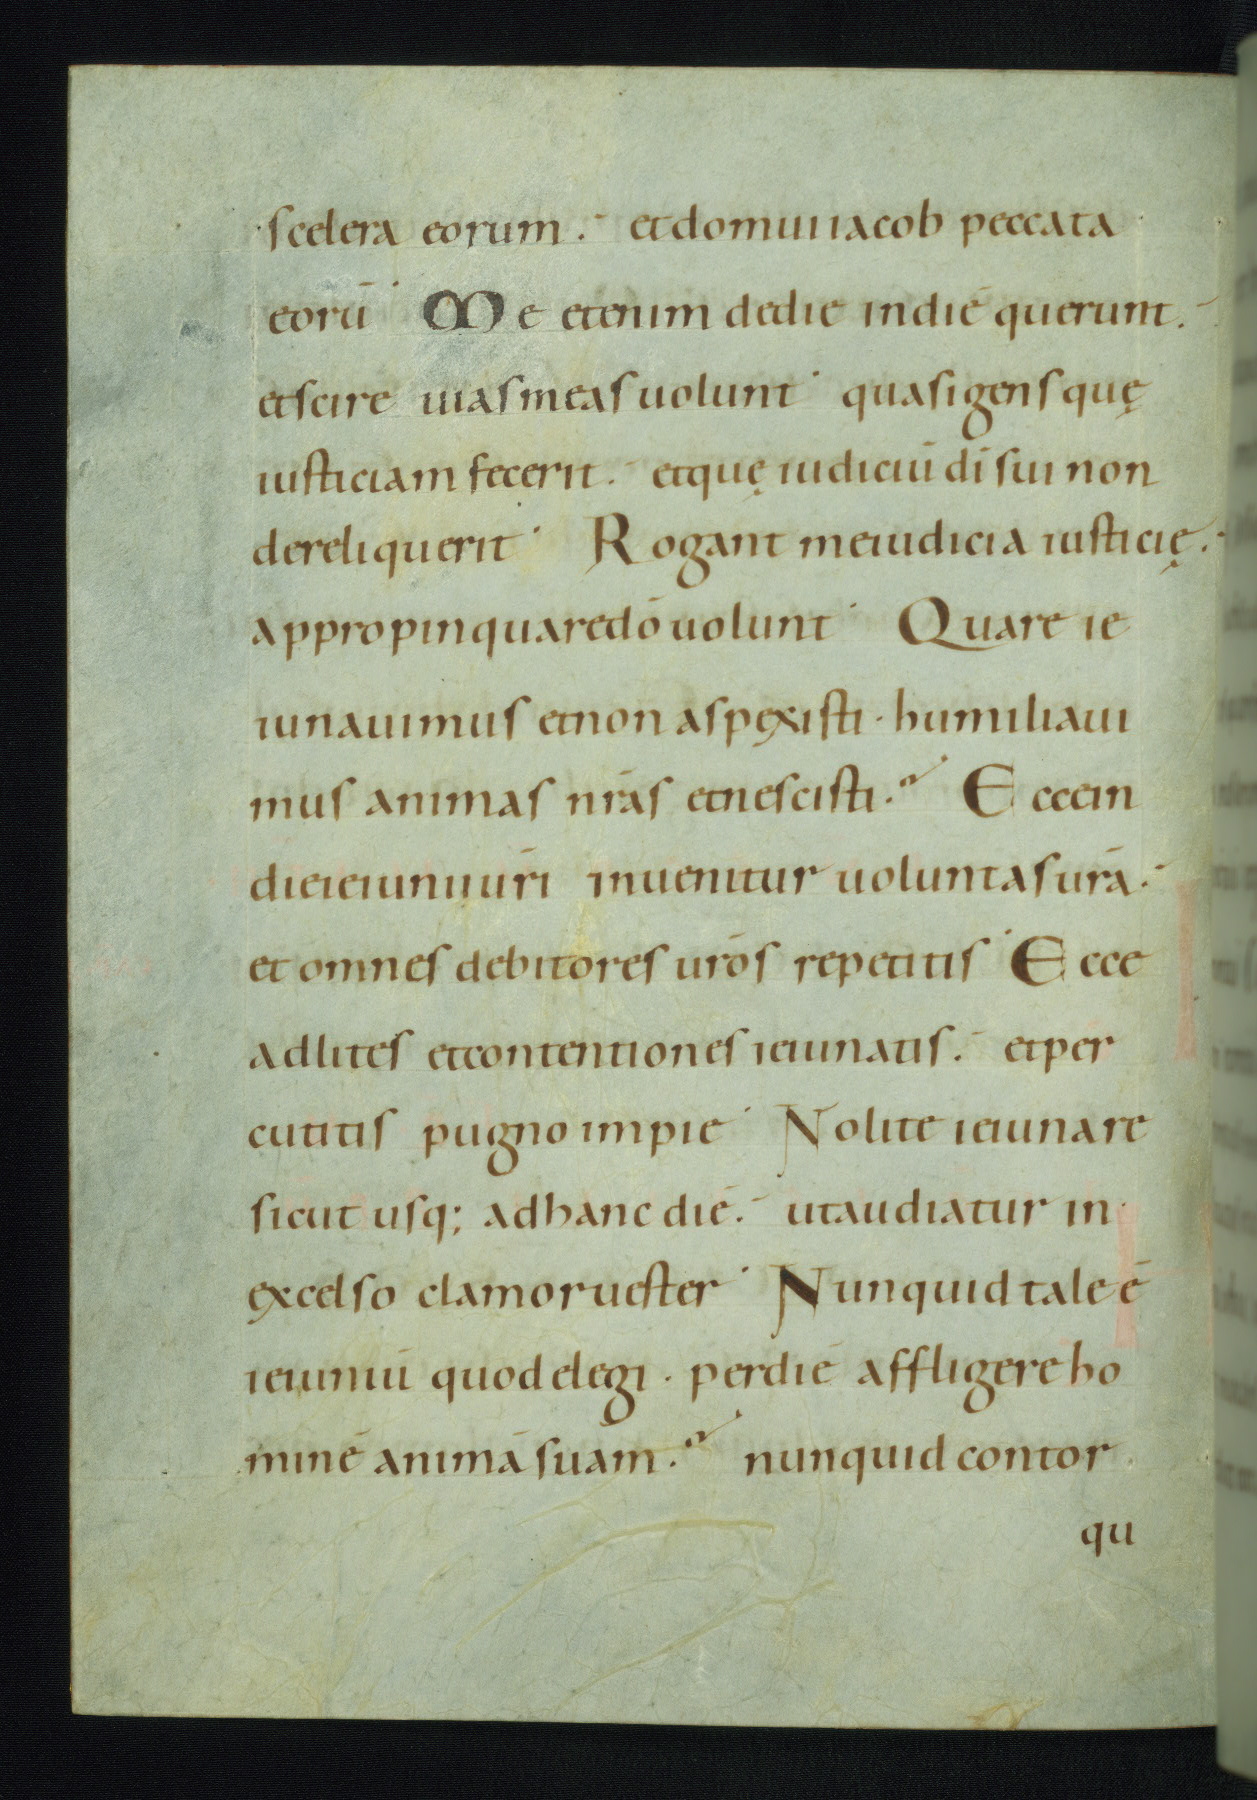 scelera eorum. et domui iacob peccata
eorū Me etenim de die in diē querunt.
et scire uias meas uolunt quasi gens quę
iusticiam fecerit. et quę iudiciū dī sui non
dereliquerit Rogant me iudicia iusticię.
appropinquare dō uolunt Quare ie
iunauimus et non aspęxisti · humiliaui
mus animas nr̄as et nescisti. Ecce in
die ieiunii ur̄i inuenitur uoluntas ur̄a.
et omnes debitores ur̄os repetitis Ecce
ad lites et contentiones ieiunatis. et per
cutitis pugno impie Nolite ieiunare
sicut usq; ad hanc diē. ut audiatur in
ęxcelso clamor uester Nunquid tale ē
ieiuniū quod elegi · per diē affligere ho
minē animā suam. nunquid contor
qu